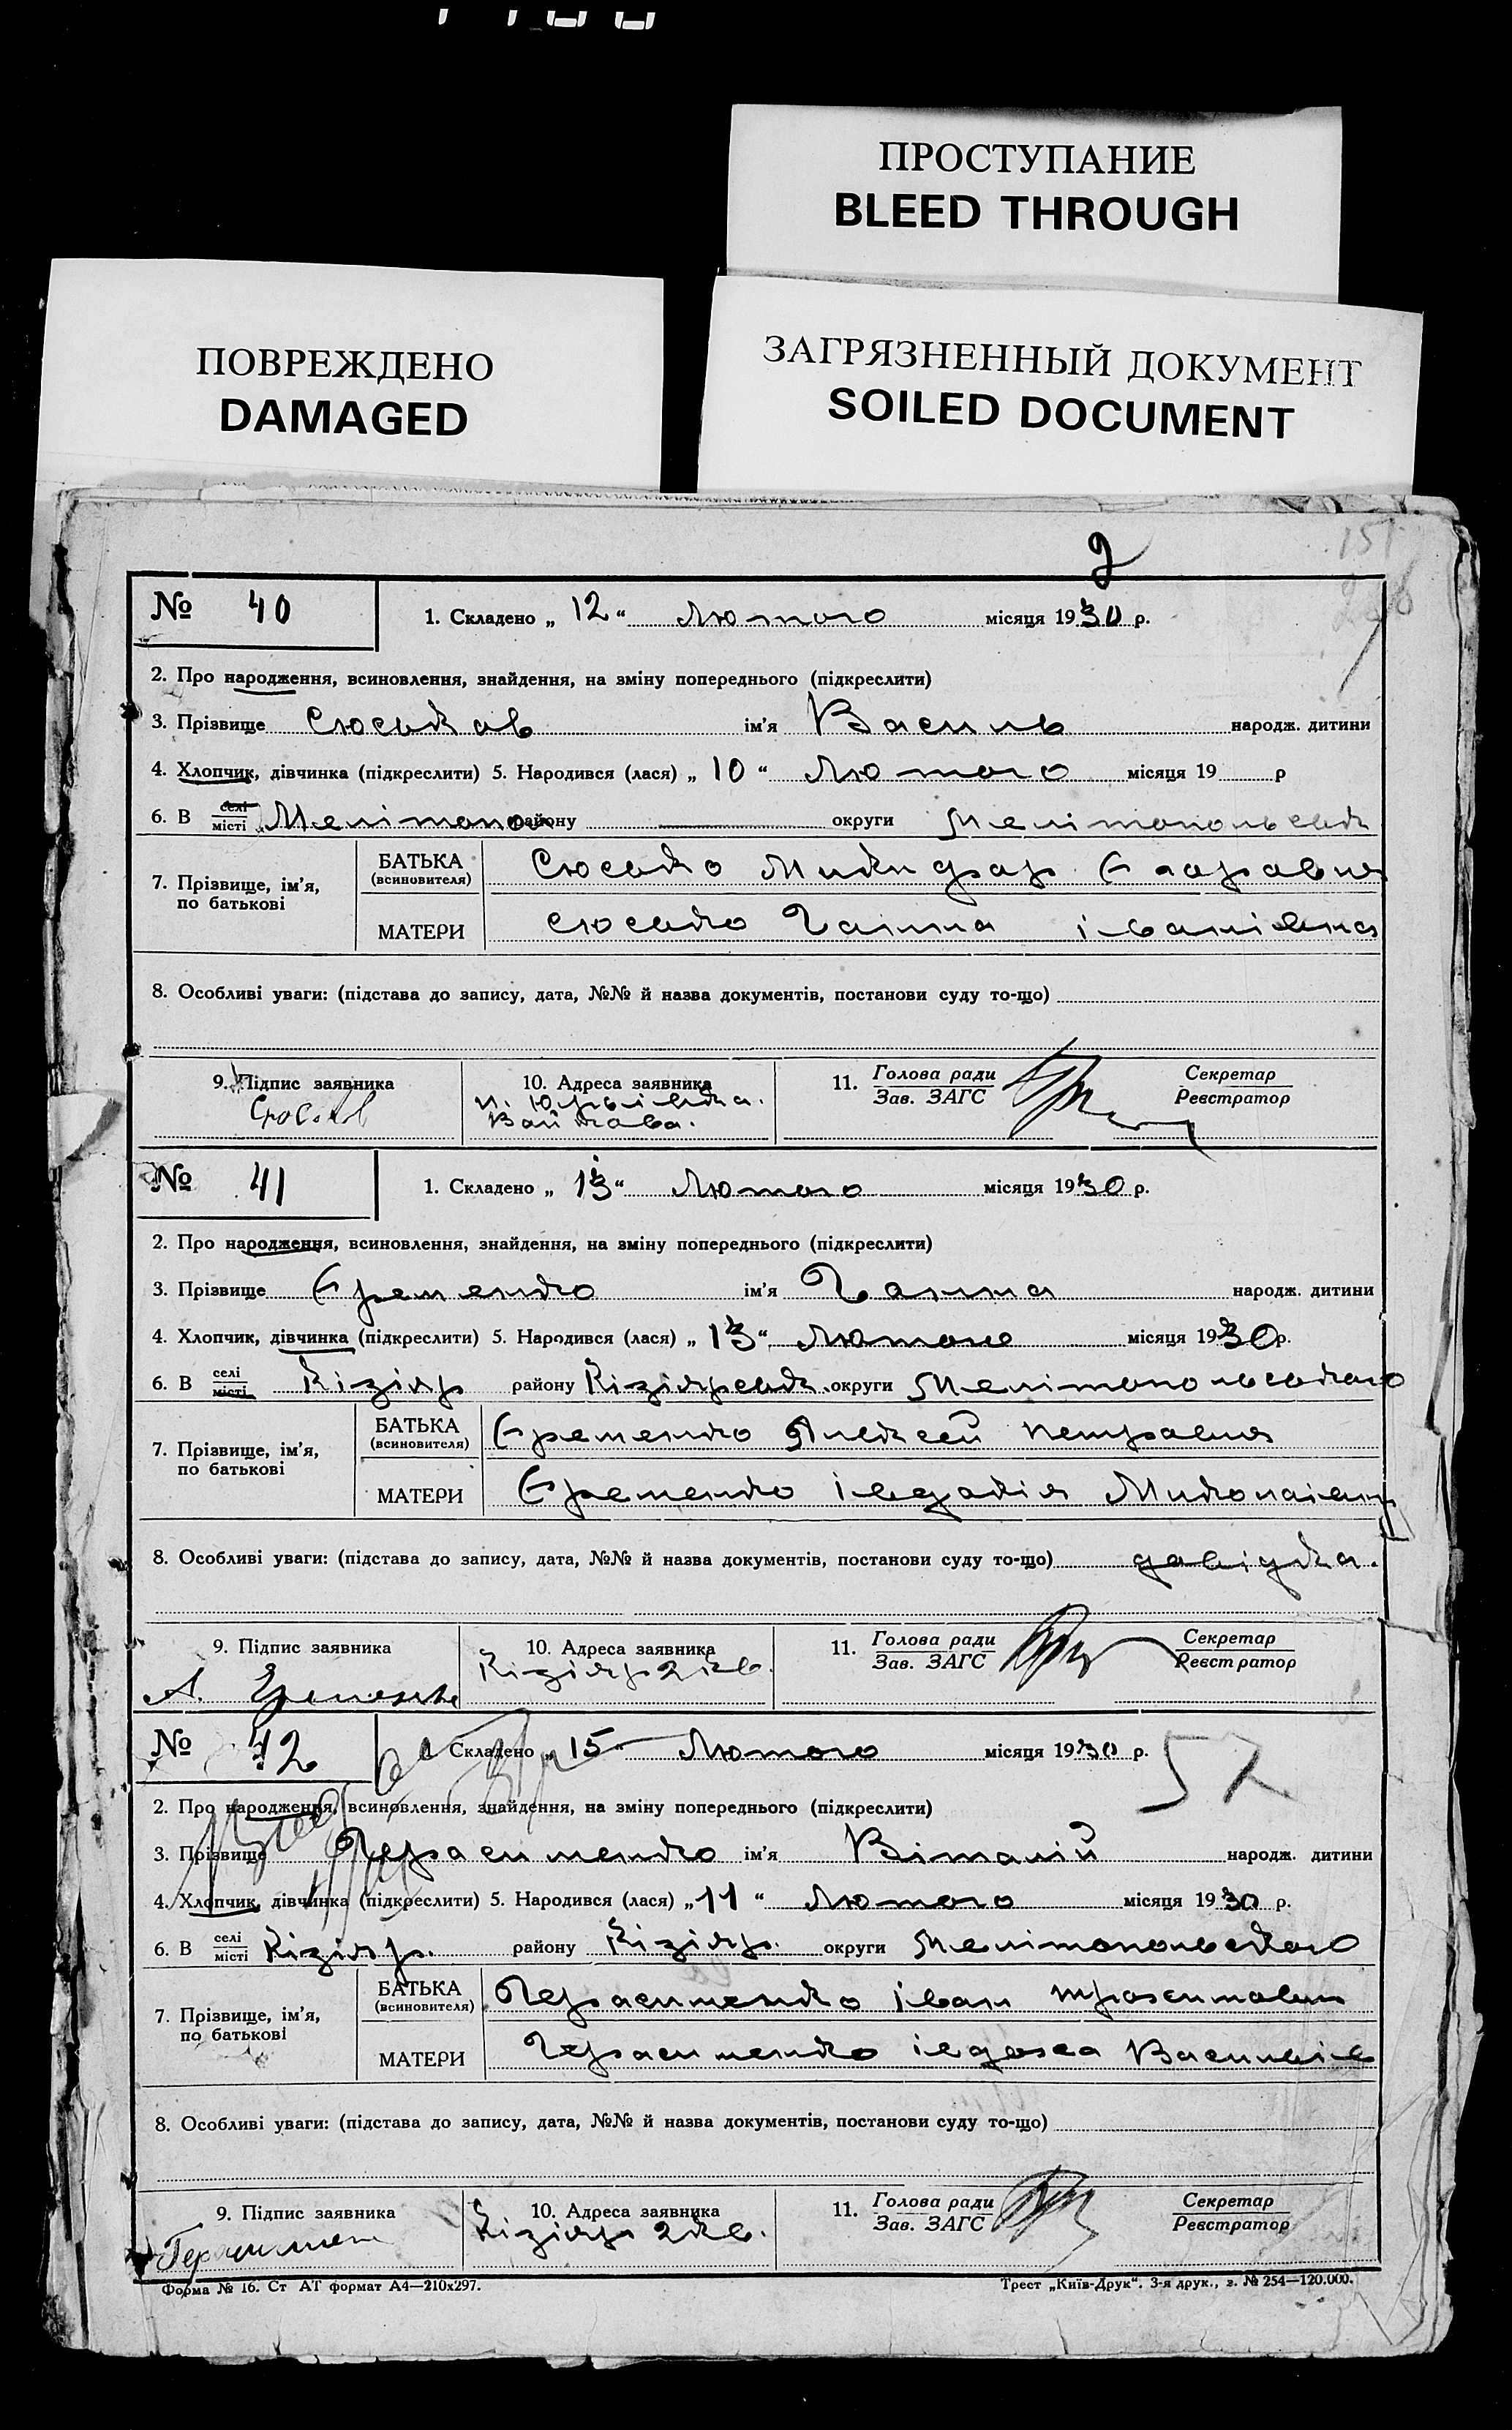 ПРОСТУПАНИЕ
BLEED THROUGH
ПОВРЕЖДЕНО
DAMAGED
ЗАГРЯЗНЕННЫЙ ДОКУМЕНТ
SOILED DOCUMENT
151
№ 40 1. Складено „ 12 “ Лютого місяця 1930 р.
2. Про народження, всиновлення, знайдення, на зміну попереднього (підкреслити)
3. Прізвище Сюськов ім'я Василь народж. дитини
4. Хлопчик, дівчинка (підкреслити) 5. Народився (лася) „ 10 “ Лютого місяця 19 р
6. В селі місті Мелітопол району округи Мелітопольськ
7. Прізвище, ім'я, по батькові БАТЬКА (всиновителя) Сюсько Микифор
МАТЕРИ Сюсько Ганна Іванівна
8. Особливі уваги: (підстава до запису, дата, №№ й назва документів, постанови суду то-що)
9. Підпис заявника 10. Адреса заявника 11. Голова ради Зав. ЗАГС Секретар Реєстратор
№ 41 1. Складено „ 13 “ Лютого місяця 1930 р.
2. Про народження, всиновлення, знайдення, на зміну попереднього (підкреслити)
3. Прізвище Єременко ім'я Ганна народж. дитини
4. Хлопчик, дівчинка (підкреслити) 5. Народився (лася) „ 13 “ Лютого місяця 1930 р.
6. В селі місті Кізіяр району Кізіярськ. округи Мелітопольского
7. Прізвище, ім'я, по батькові БАТЬКА (всиновителя) Єременко Алексей Петровия
МАТЕРИ Єременко Івдокія
8. Особливі уваги: (підстава до запису, дата, №№ й назва документів, постанови суду то-що) довідка.
9. Підпис заявника 10. Адреса заявника 11. Голова ради Зав. ЗАГС Секретар Реєстратор
А. Еременко Кізіяр 2 кв.
№ 42 1. Складено „ 15 “ Лютого місяця 1930 р.
2. Про народження, всиновлення, знайдення, на зміну попереднього (підкреслити)
3. Прізвище Герасименко ім'я Віталій народж. дитини
4. Хлопчик, дівчинка (підкреслити) 5. Народився (лася) „ 11 “ Лютого місяця 1930 р.
6. В селі місті Кізіяр. району Кізіяр. округи Мелітопольского
7. Прізвище, ім'я, по батькові БАТЬКА (всиновителя) Герасименко Іван
МАТЕРИ Герасименко Василів
8. Особливі уваги: (підстава до запису, дата, №№ й назва документів, постанови суду то-що)
9. Підпис заявника 10. Адреса заявника 11. Голова ради Зав. ЗАГС Секретар Реєстратор
Герасимен Кізіяр 2 кв.
Форма № 16. Ст АТ формат А4—210х297. Трест „Київ-Друк“. 3-я друк., з. № 254—120.000.